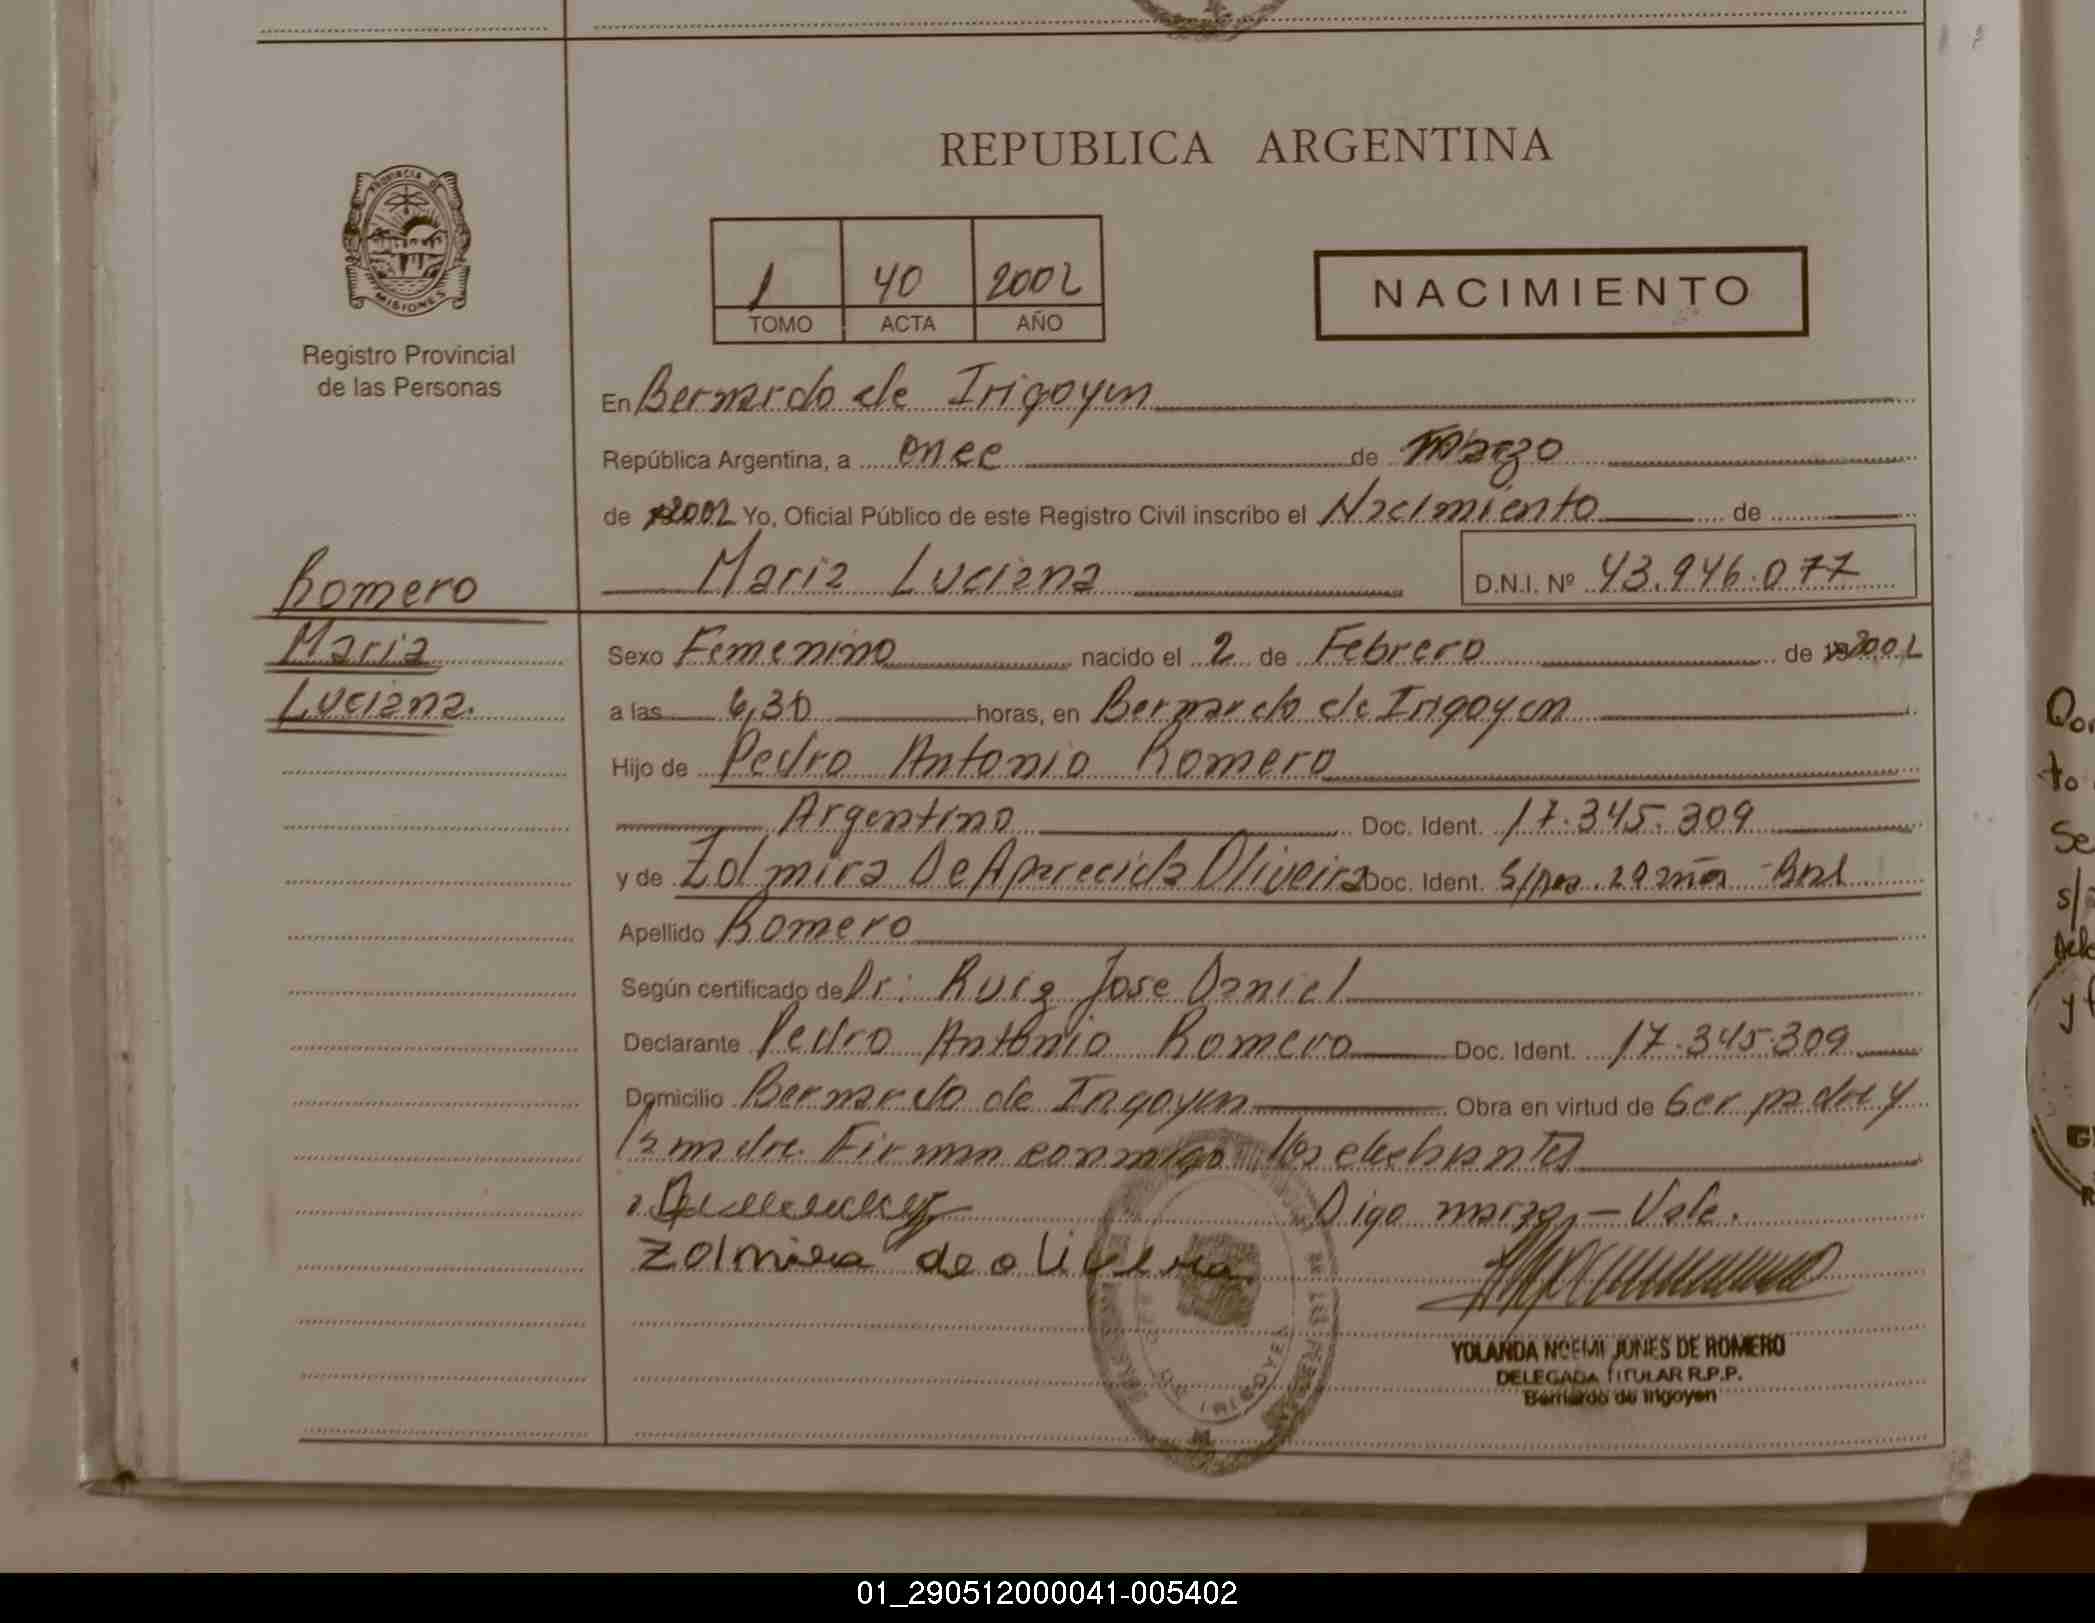 REPUBLICA ARGENTINA
PROVINCIA DE
MISIONES
Registro Provincial
de las Personas
1 40 2002
TOMO ACTA AÑO
NACIMIENTO
En Bernardo de Irigoyen
República Argentina, a once de Marzo
de 2002 Yo, Oficial Público de este Registro Civil inscribo el Nacimiento de
Maria Luciana D.N.I. Nº 43.946.077
Romero
Maria
Luciana.
Sexo Femenino nacido el 2 de Febrero de 2002
a las 6,30 horas, en Bernardo de Irigoyen
Hijo de Pedro Antonio Romero
Argentino Doc. Ident. 17.345.309
y de Zolmira De Aparecida Oliveira Doc. Ident. S/pos. 29 años
Apellido Romero
Según certificado de Dr: Ruiz Jose Daniel
Declarante Pedro Antonio Romero Doc. Ident. 17.345.309
Domicilio Bernardo de Irigoyen Obra en virtud de Ser padre y
la madre. Firman conmigo los
Digo marzo - Vale.
Zolmira de oliveira
YOLANDA NOEMI JUNES DE ROMERO
DELEGADA TITULAR R.P.P.
Bernardo de Irigoyen
01_290512000041-005402